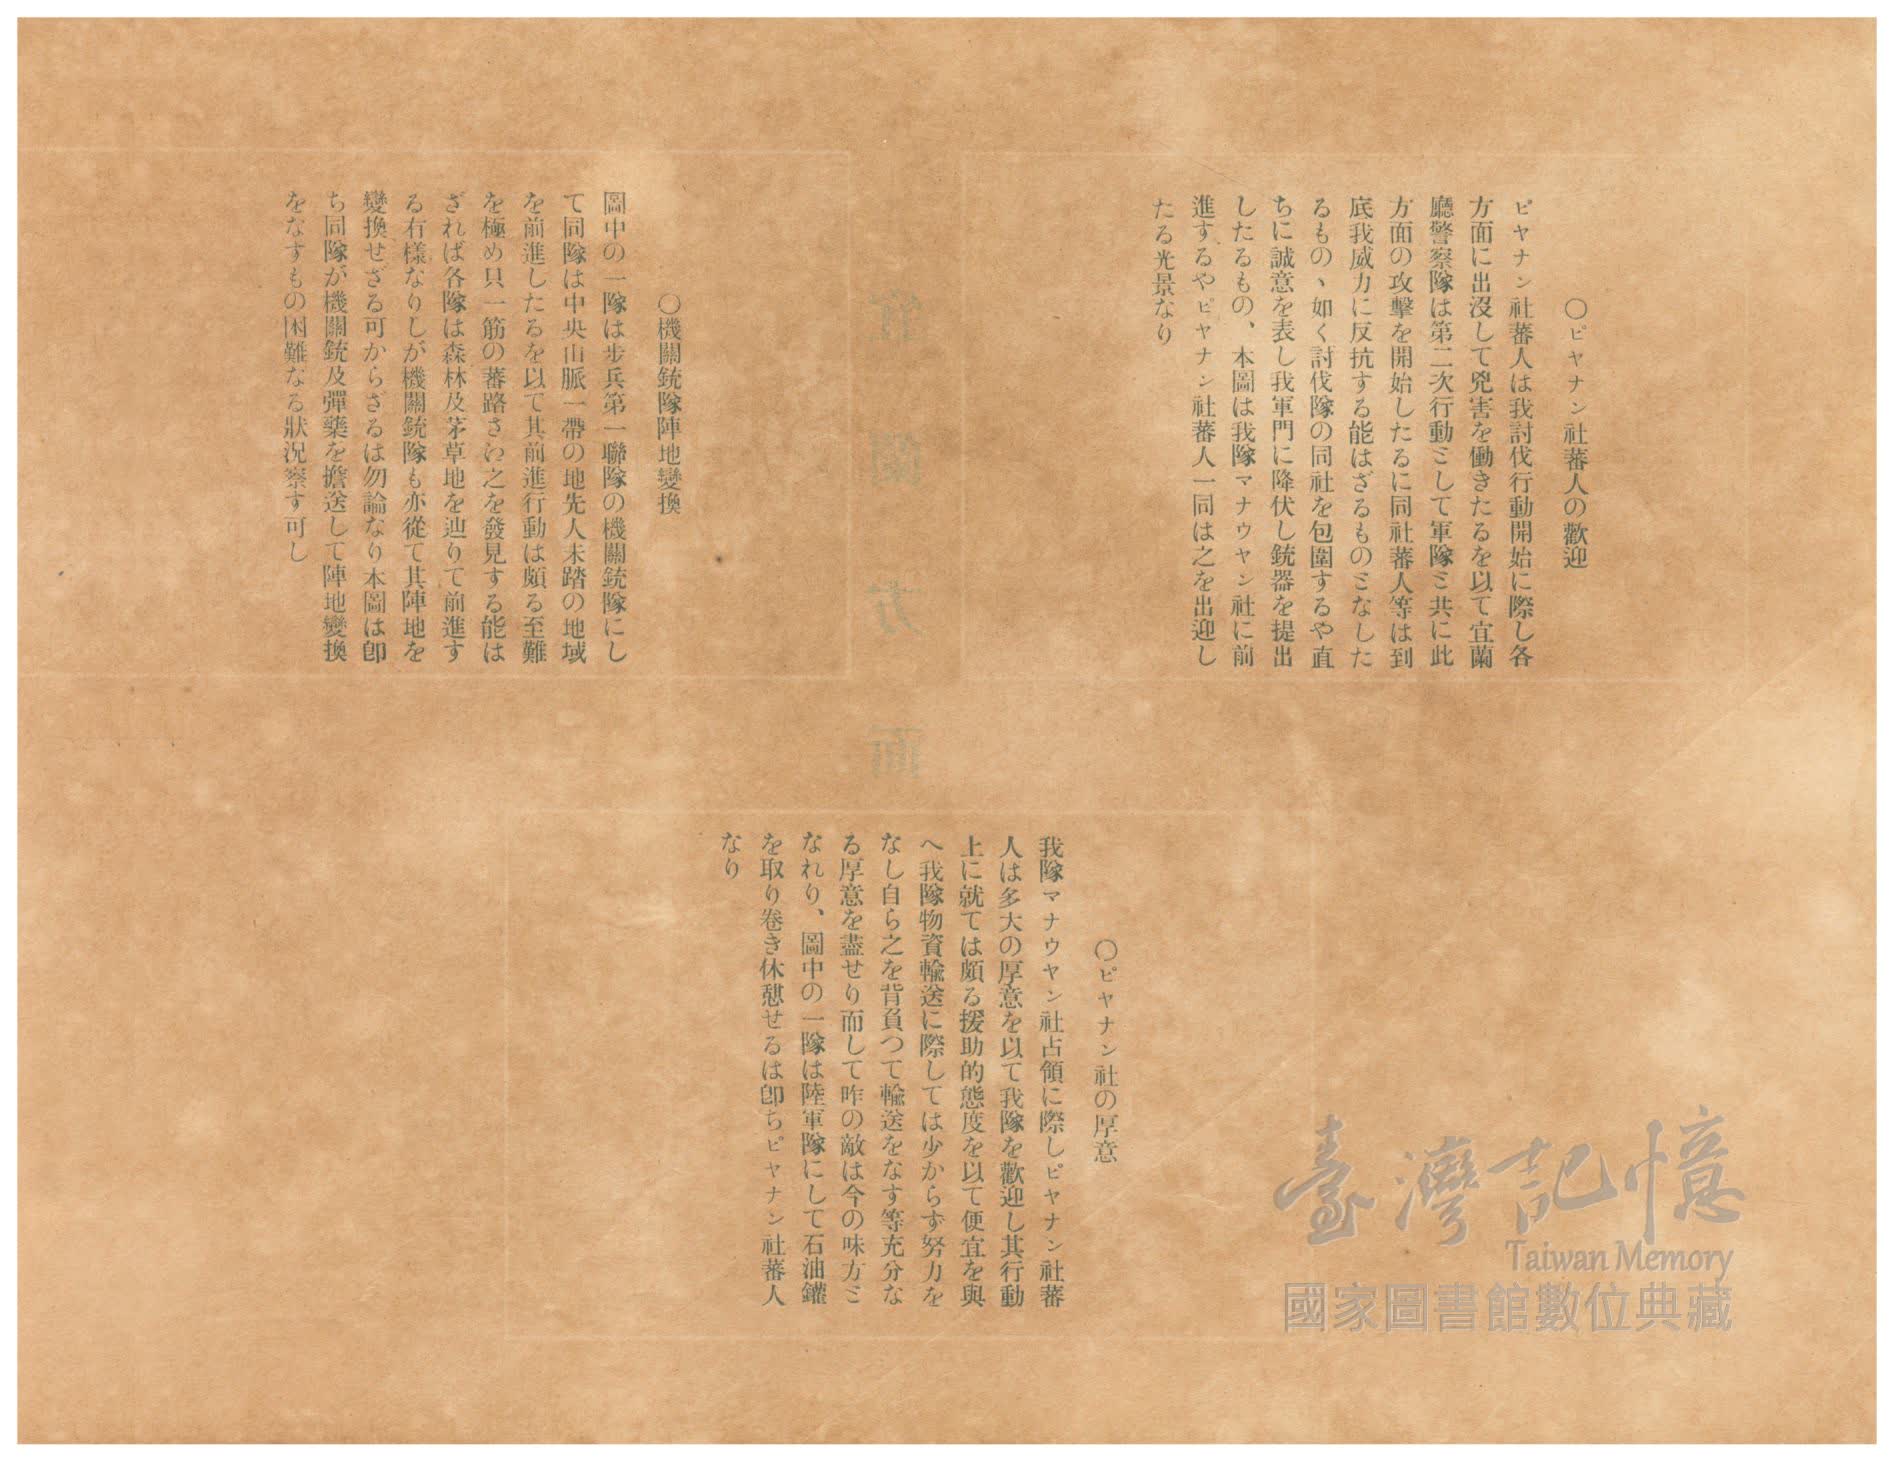 〇ピヤナン社蕃人の歡迎
ピヤナン社蕃人は我討伐行動開始に際し各
方面に出沒して兇害を働きたるを以て宜蘭
廳警察隊は第二次行動ミして軍隊ミ共に此
方面の攻擊を開始したるに同社蕃人等は到
底我威力に反抗する能はざるものミなした
るものヽ如く討伐隊の同社を包圍するや直
ちに誠意を表し我軍門に降伏し銃器を提出
したるもの、本圖は我隊マナウヤン社に前
進するやピヤナン社蕃人一同は之を出迎し
たる光景なり
〇機關銃隊陣地變換
圖中の一隊は步兵第一聯隊の機關銃隊にし
て同隊は中央山脈一帶の地先人未踏の地域
を前進したるを以て其前進行動は頗る至難
を極め只一筋の蕃路さへ之を發見する能は
ざれば各隊は森林及茅草地を辿りて前進す
る有樣なりしが機關銃隊も亦從て其陣地を
變換せざる可からざるは勿論なり本圖は卽
ち同隊が機關銃及彈藥を擔送して陣地變換
をなすもの困難なる狀況察す可し
宜蘭方面
〇ピヤナン社の厚意
我隊マナウヤン社占領に際しピヤナン社蕃
人は多大の厚意を以て我隊を歡迎し其行動
上に就ては頗る援助的態度を以て便宜を與
へ我隊物資輸送に際しては少からず努力を
なし自ら之を背負つて輸送をなす等充分な
る厚意を盡せり而して昨の敵は今の味方ミ
なれり、圖中の一隊は陸軍隊にして石油鑵
を取り卷き休憩せるは卽ちピヤナン社蕃人
なり
臺灣記憶
Taiwan Memory
國家圖書館數位典藏